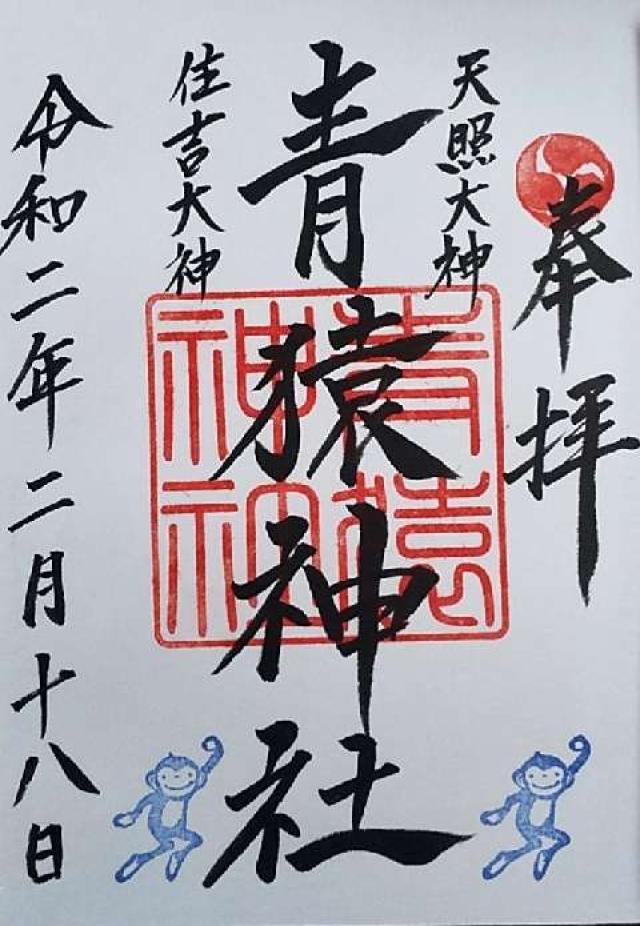 奉拝
天照大神
青猿神社
住吉大神
令和二年二月十八日
青猿
神社